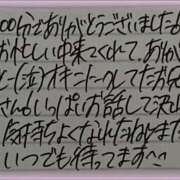 00分でありがとうございました
お忙しい中来てくれて、ありが
と〜(泣)オキニトークしてたお兄
さん。いっぱいお話して沢山
気持ちよくなれたねまた
いつでも待ってます^^